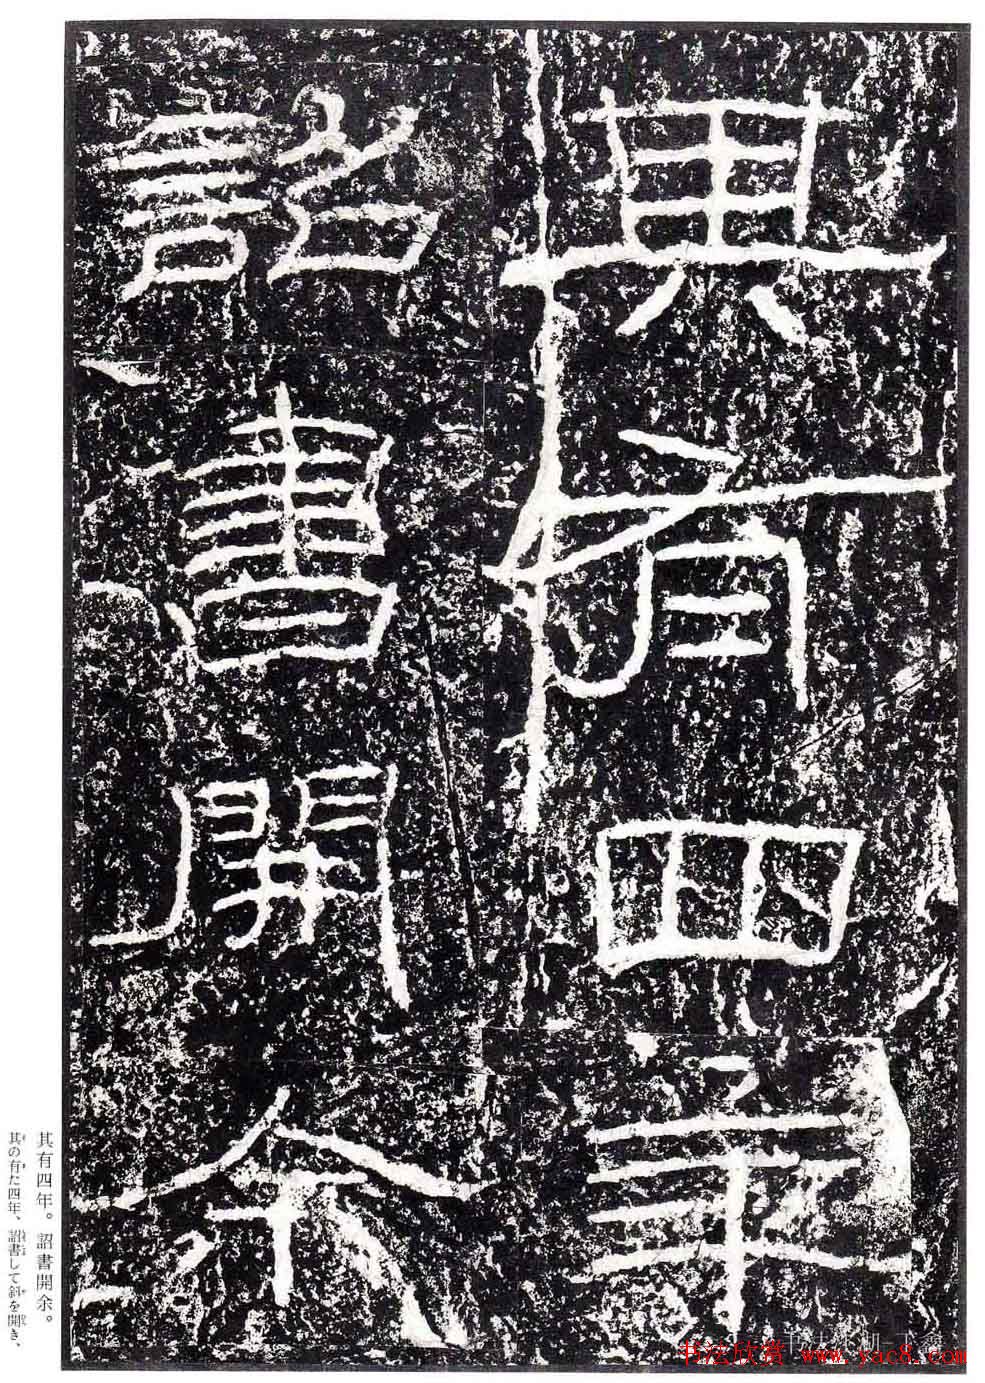 其有四年
詔書開余
其有四年。詔書開余。
其の有た四年、詔書して斜を開き、
书法欣赏 www.yac8.com